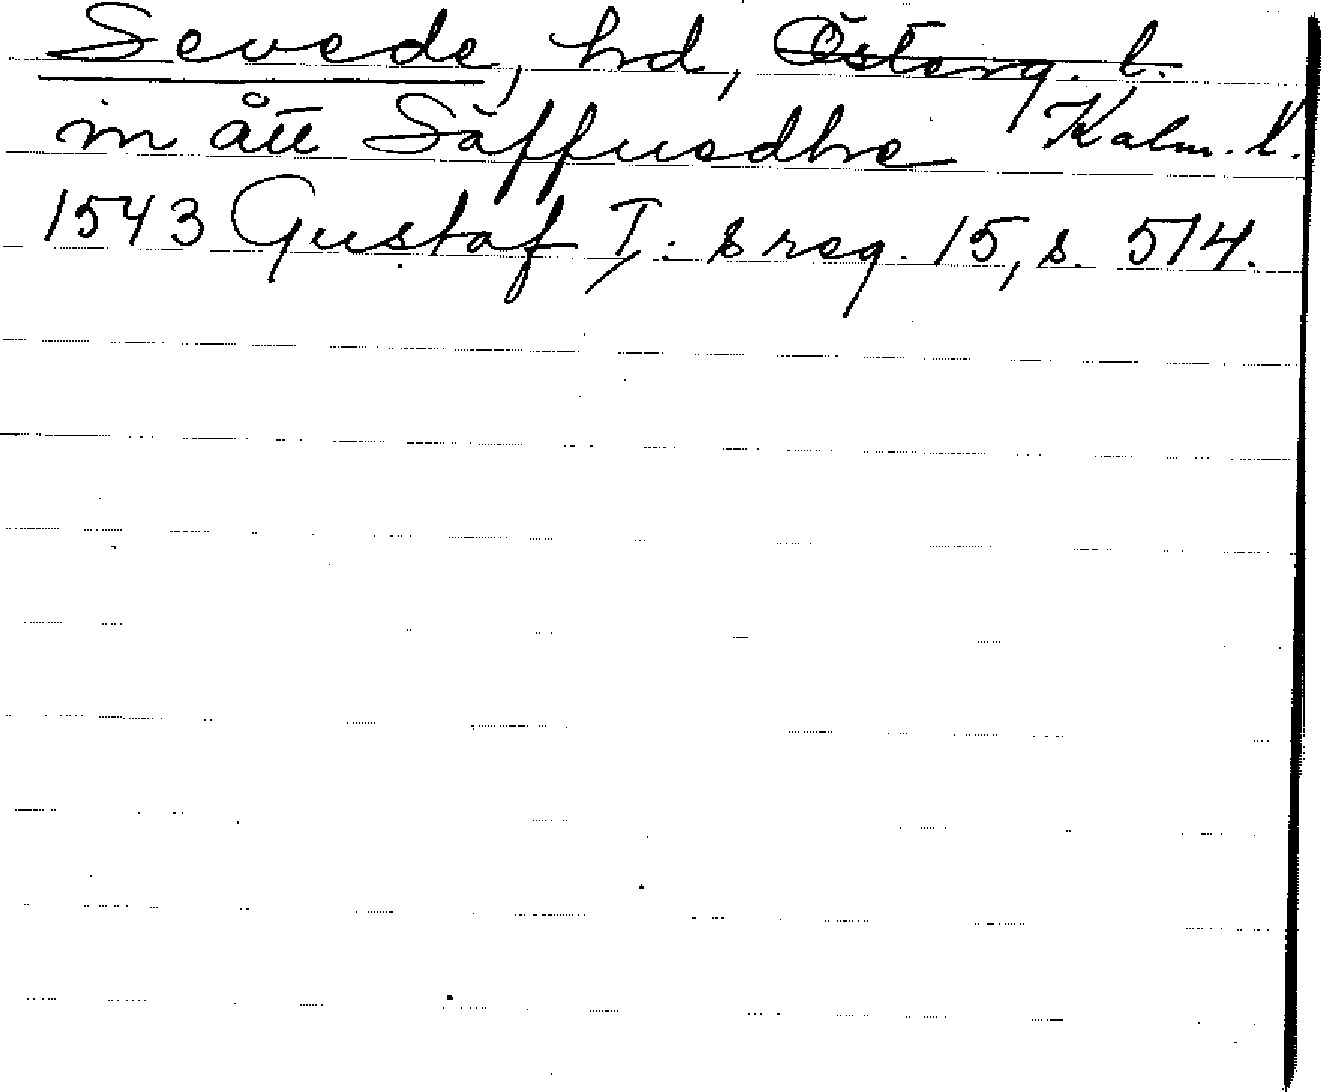 Sevede, hd, Österg. l.
in ått Säffuedhe Kalm. l.
1543 Gustaf I:s reg. 15, s. 514.